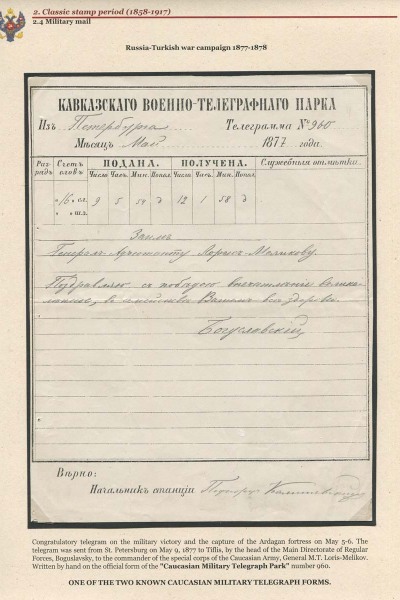 2. Classic stamp period (1858-1917)
2.4 Military mail
Russia-Turkish war campaign 1877-1878
КАВКАЗСКАГО ВОЕННО-ТЕЛЕГРАФНАГО ПАРКА
Изъ Петербурга Телеграмма № 960
Мѣсяцъ Май 1877 года.
Разрядъ Счетъ словъ ПОДАНА. ПОЛУЧЕНА. Служебныя отмѣтки.
Число Часъ. Мин. Попол. Число Часъ. Мин. Попол.
16 сл. 9 5 д 12 1 58 д
Генералъ Адъютанту Лорисъ-Меликову.
Поздравляю съ побѣдою впечатлѣніе велико-
лѣпное, въ семействѣ Вашемъ всѣ здоровы.
Богуславскій
Вѣрно:
Начальникъ станціи
Congratulatory telegram on the military victory and the capture of the Ardagan fortress on May 5-6. The
telegram was sent from St. Petersburg on May 9, 1877 to Tiflis, by the head of the Main Directorate of Regular
Forces, Boguslavsky, to the commander of the special corps of the Caucasian Army, General M.T. Loris-Melikov.
Written by hand on the official form of the "Caucasian Military Telegraph Park" number 960.
ONE OF THE TWO KNOWN CAUCASIAN MILITARY TELEGRAPH FORMS.